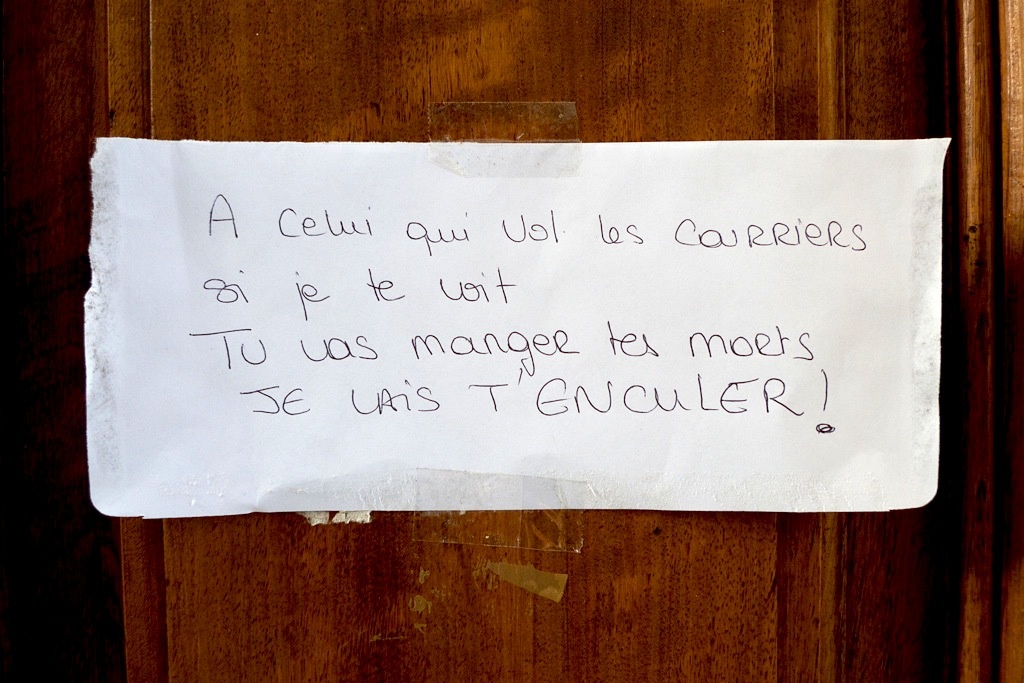 A celui qui vol les COURRIERS
si je te voit
Tu vas manger tes morts
JE VAIS T'ENCULER !